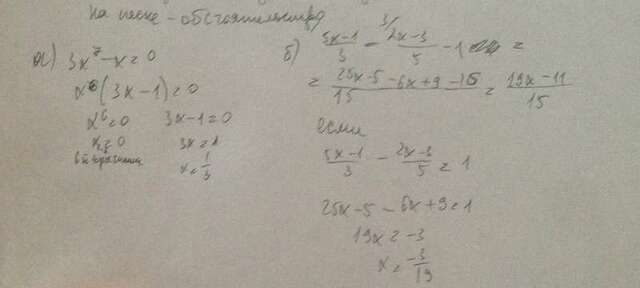 на песке - обстоятельство
а) 3x⁷ - x = 0
x⁶(3x-1) = 0
x⁶ = 0 3x-1 = 0
x = 0 3x = 1
x = 1/3
б) (5x-1)/3 - ³/(2x-3)/5 - 1 =
= (25x-5-6x+9-15)/15 = (19x-11)/15
если
(5x-1)/3 - (2x-3)/5 = 1
25x-5 - 6x+9 = 1
19x = -3
x = -3/19